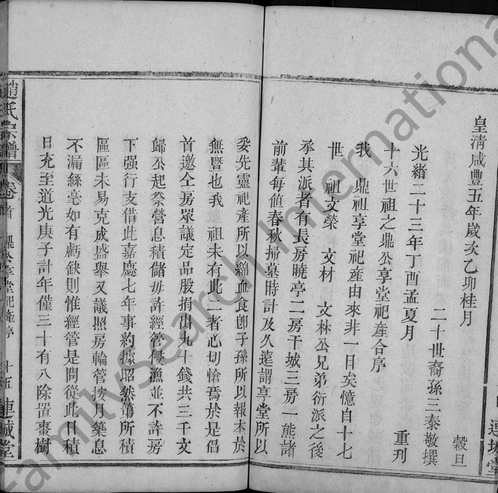 皇清咸豐五年歲次乙卯桂月 穀旦
二十世裔孫三泰敬撰
光緒二十三年丁酉孟夏月 重刋
十六世祖之鼎公享堂祀產合序
我 鼎祖享堂祀產由來非一日矣憶自十七
世 祖文榮 文材 文林公兄弟衍派之後
承其派者有長房曉亭二房干城三房一熊諸
前輩每值春秋掃墓時計及久遠謂享堂所以
妥先靈祀產所以綿血食卽子孫所以報本於
無暨也我 祖未有此二者心切愴焉於是倡
首邀仝房眾議定品股捐出九十錢共三千文
歸公起祭營息積儲毋許經管侵漁並不許房
下强行支借此嘉慶七年事約據昭然第所積
區區未易克成盛舉又議照房輪管按年築息
不漏絲亳如有虧缺則惟經管是問從此日積
日充至道光庚子計年僅三十有八除置棗樹
趙氏宗譜 卷首 鼎公享堂祀產序 連城堂
連城堂
FamilySearch International